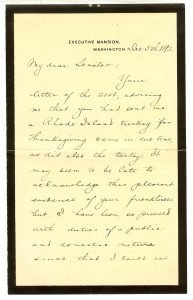 EXECUTIVE MANSION,
WASHINGTON, Dec 5th 1892
My dear Senator:
Your
letter of the 21st, advising
me that you had sent me
a Rhode Island turkey for
Thanksgiving came in due time,
as did also the turkey. It
may seem to be late to
acknowledge this pleasant
evidence of your friendliness
but I have been so pressed
with duties of a public
and domestic nature
since that I could not